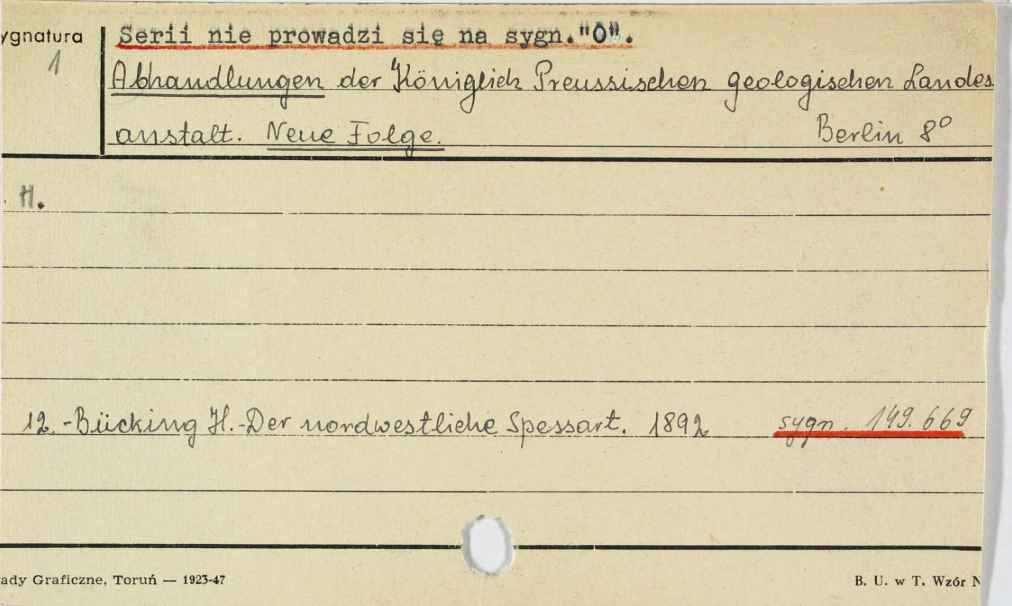 ygnatura Serii nie prowadzi się na sygn."O".
1
Abhandlungen der Königlich Preussischen geologischen Landes
anstalt. Neue Folge. Berlin 8°
H.
12.-Bücking H.-Der nordwestliche Spessart. 1892 sygn. 149.669
ady Graficzne, Toruń — 1923-47 B. U. w T. Wzór N